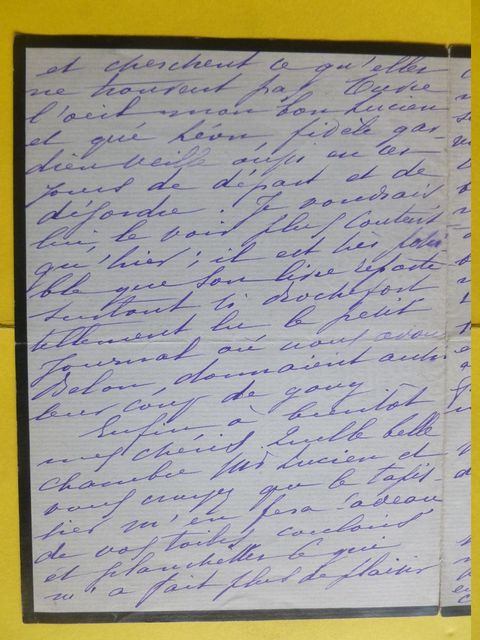 et cherchent ce qu'elles
ne trouvent pas. Ouvre
l'oeil mon bon Lucien
et que Léon, fidèle gar
dien veille aussi en ces
jours de départ et de
désordre. Je voudrais
lui, le voir plus content
qu'hier ; il est très
ble que son lise reporte
surtout si Rochefort
tellement lu le petit
Journal où nous avons
Belon, donnaient
leur coup de
Enfin à bientôt
mes chéris. Quelle belle
chambre Md Lucien et
vous croyez que le tapis-
sier m'en fera cadeau
de vos toiles, coulons
et planchettes ce qui
m'a fait plus de plaisir